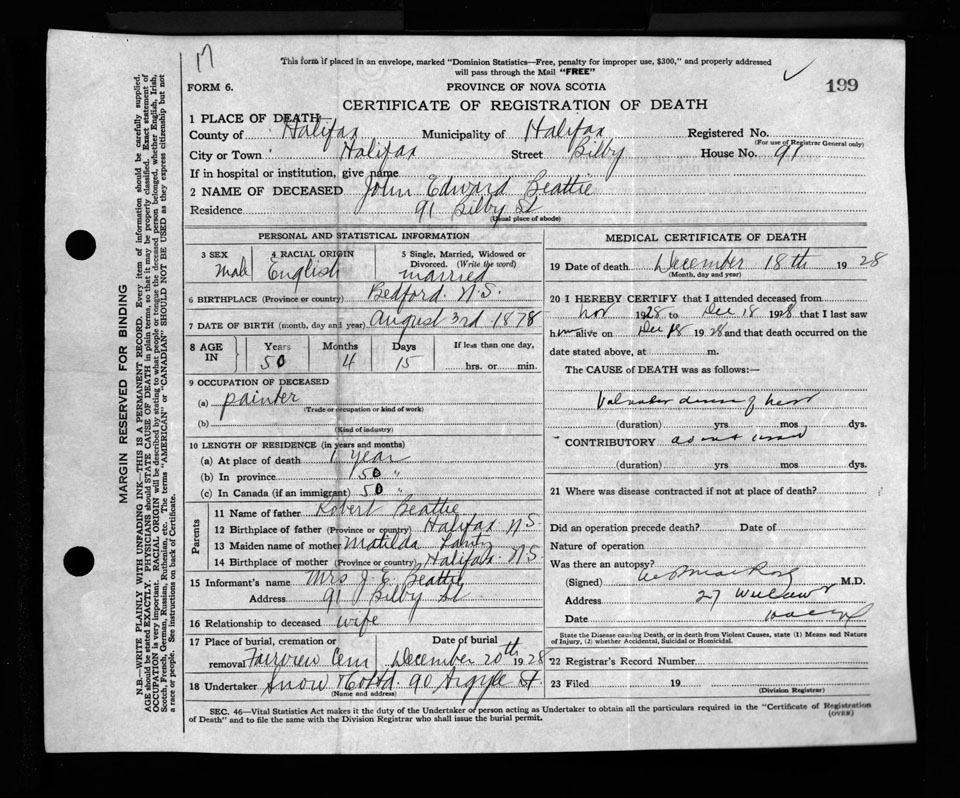 17
This form if placed in an envelope, marked "Dominion Statistics—Free, penalty for improper use, $300," and properly addressed
will pass through the Mail "FREE"
199
FORM 6.
PROVINCE OF NOVA SCOTIA
CERTIFICATE OF REGISTRATION OF DEATH
1 PLACE OF DEATH
County of Halifax Municipality of Halifax Registered No.
(For use of Registrar General only)
City or Town Halifax Street Bilby House No. 91
If in hospital or institution, give name
2 NAME OF DECEASED John Edward Beattie
Residence 91 Bilby St
(Usual place of abode)
PERSONAL AND STATISTICAL INFORMATION
3 SEX 4 RACIAL ORIGIN 5 Single, Married, Widowed or
Divorced. (Write the word)
Male English married
6 BIRTHPLACE (Province or country) Bedford. N.S.
7 DATE OF BIRTH (month, day and year) August 3rd 1878
8 AGE IN Years Months Days If less than one day,
50 4 15 hrs. or min.
9 OCCUPATION OF DECEASED
(a) painter
(Trade or occupation or kind of work)
(b)
(Kind of industry)
10 LENGTH OF RESIDENCE (in years and months)
(a) At place of death 1 year
(b) In province 50 "
(c) In Canada (if an immigrant) 50 "
Parents
11 Name of father Robert Beattie
12 Birthplace of father (Province or country) Halifax N.S.
13 Maiden name of mother Matilda
14 Birthplace of mother (Province or country) Halifax. N.S.
15 Informant's name Mrs J. E. Beattie
Address 91 Bilby St
16 Relationship to deceased wife
17 Place of burial, cremation or Date of burial
removal Fairview Cem December 20th 1928
18 Undertaker Snow & Co Ltd. 90 Argyle St
(Name and address)
MEDICAL CERTIFICATE OF DEATH
19 Date of death December 18th 1928
(Month, day and year)
20 I HEREBY CERTIFY that I attended deceased from
Nov 1928 to Dec 18 1928 that I last saw
him alive on Dec 18 1928 and that death occurred on the
date stated above, at m.
The CAUSE of DEATH was as follows:—
Valvular disease of heart
(duration) yrs mos dys.
CONTRIBUTORY
(duration) yrs mos dys.
21 Where was disease contracted if not at place of death?
Did an operation precede death? Date of
Nature of operation
Was there an autopsy?
(Signed) M.D.
Address 27
Date
State the Disease causing Death, or in death from Violent Causes, state (1) Means and Nature
of Injury, (2) whether Accidental, Suicidal or Homicidal.
22 Registrar's Record Number
23 Filed 19
(Division Registrar)
SEC. 46—Vital Statistics Act makes it the duty of the Undertaker or person acting as Undertaker to obtain all the particulars required in the "Certificate of Registration
of Death" and to file the same with the Division Registrar who shall issue the burial permit.
(OVER)
MARGIN RESERVED FOR BINDING
N.B.—WRITE PLAINLY WITH UNFADING INK—THIS IS A PERMANENT RECORD. Every item of information should be carefully supplied.
AGE should be stated EXACTLY. PHYSICIANS should STATE CAUSE OF DEATH in plain terms, so that it may be properly classified. Exact statement of
OCCUPATION is very important. RACIAL ORIGIN will be described by stating to what people or tongue the deceased person belonged, whether English, Irish,
Scotch, French, German, Russian, Ruthenian, etc. The terms "AMERICAN" or "CANADIAN" SHOULD NOT BE USED as they express citizenship but not
a race or people. See instructions on back of Certificate.